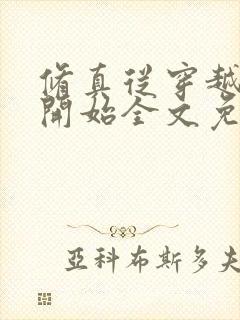 脩真從穿越
開始全文免
亞科布斯多夫